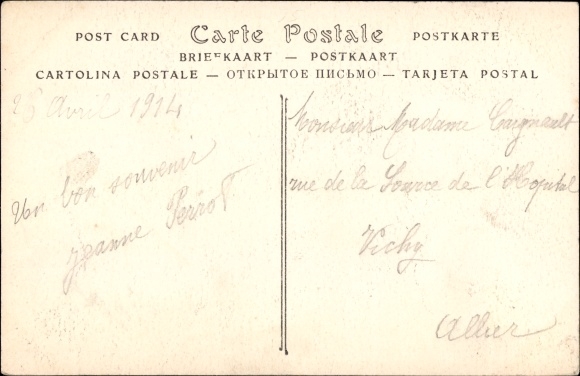 POST CARD Carte Postale POSTKARTE
BRIEFKAART — POSTKAART
CARTOLINA POSTALE — ОТКРЫТОЕ ПИСЬМО — TARJETA POSTAL
Avril 1914
Un bon souvenir
Jeanne Perrot
Monsieur Madame
rue de la Source de l'Hopital
Vichy
Allier